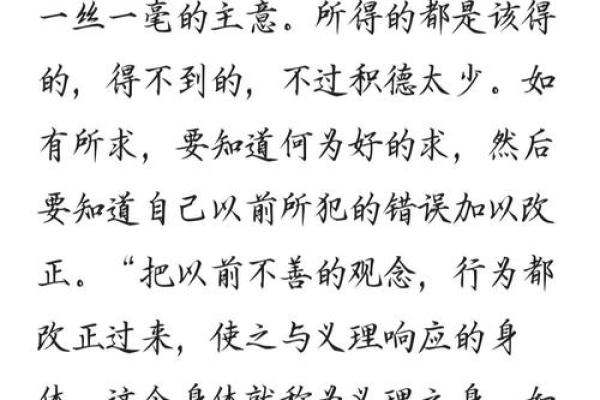 一丝一毫的主意。所得的都是该得
的，得不到的，不过积德太少。如
有所求，要知道何为好的求，然后
要知道自己以前所犯的错误加以改
正。“把以前不善的观念，行为都
改正过来，使之与义理响应的身
体，这个身体就称为义理之身，如